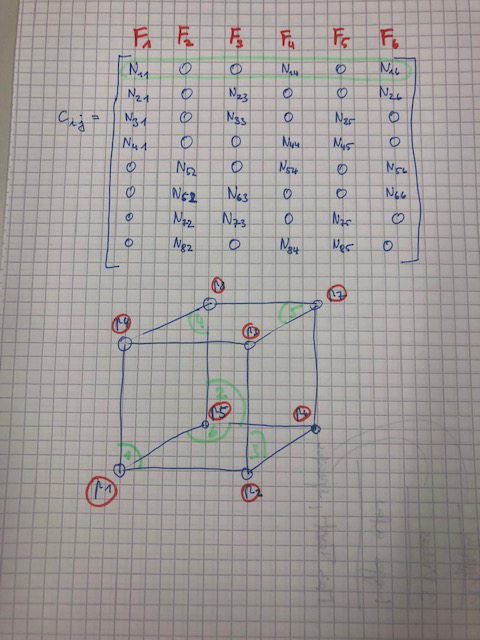 F1 F2 F3 F4 F5 F6
N11 0 0 N14 0 N16
N21 0 N23 0 0 N26
Cij = N31 0 N33 0 N35 0
N41 0 0 N44 N45 0
0 N52 0 N54 0 N56
0 N62 N63 0 0 N66
0 N72 N73 0 N75 0
0 N82 0 N84 N85 0
P4
P3
4
5
2
P5
6
3
P1
P2